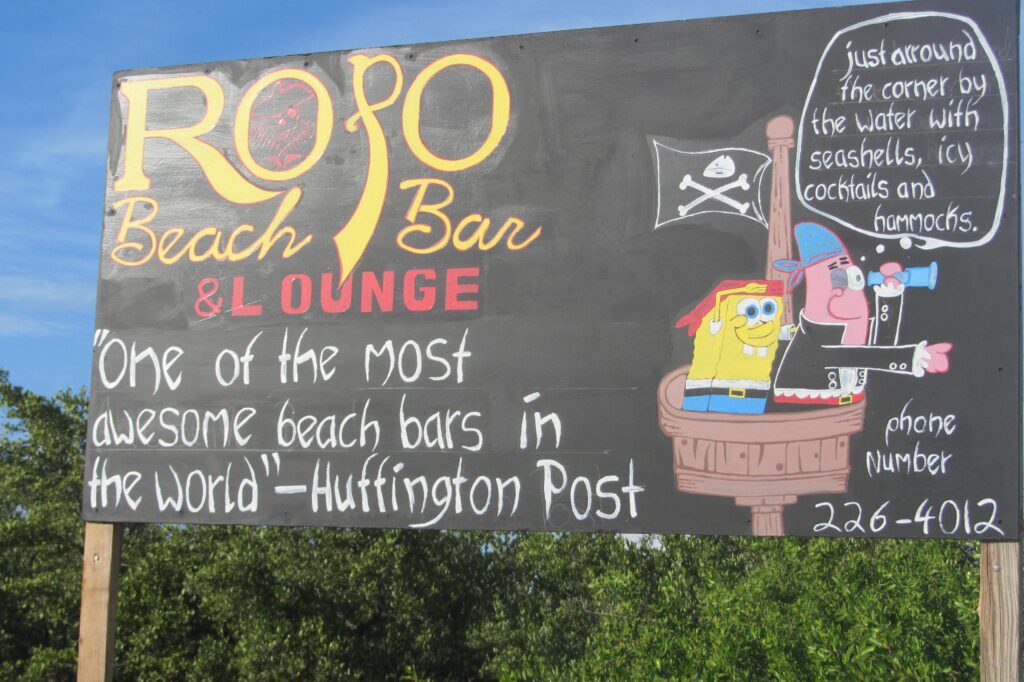 ROJO
Beach Bar
& LOUNGE
"One of the most
awesome beach bars in
the world"-Huffington Post
just arround
the corner by
the water with
seashells, icy
cocktails and
hammocks.
phone
Number
226-4012